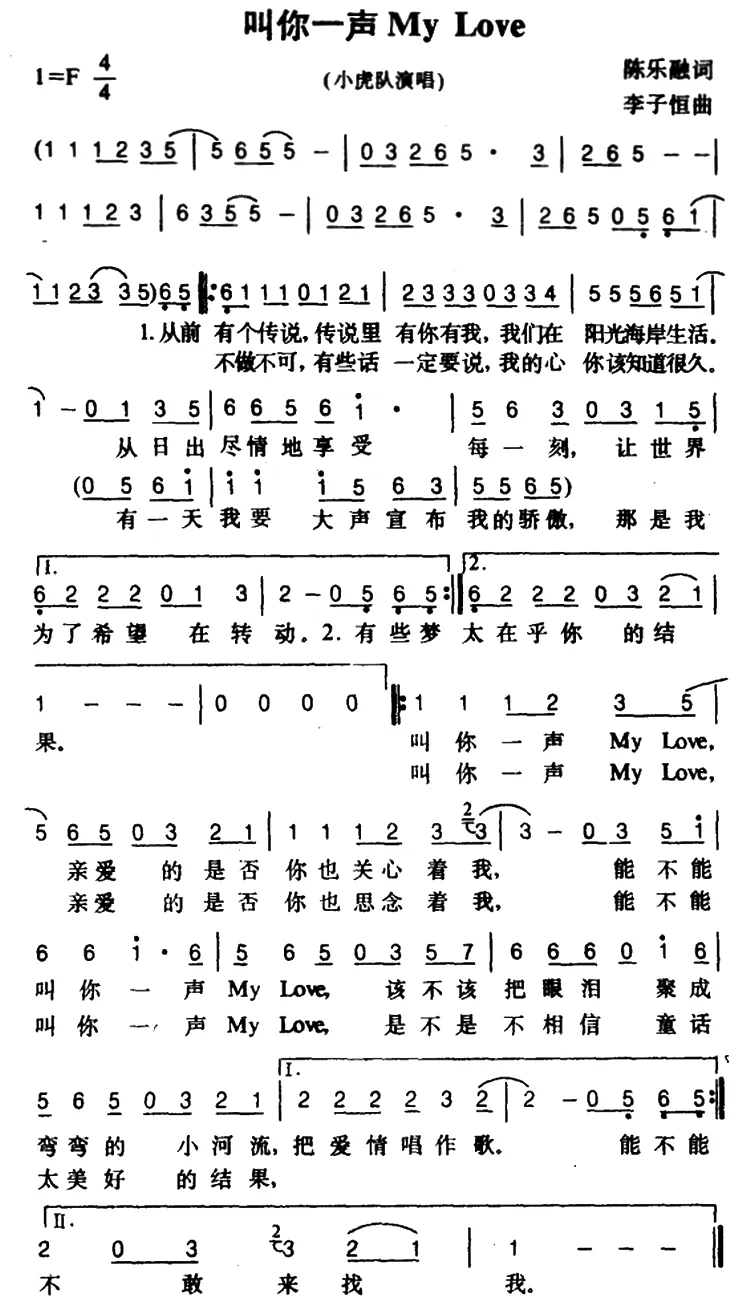 叫你一声 My Love
1=F 4/4
(小虎队演唱)
陈乐融词
李子恒曲
(1 1 1 2 3 5 | 5 6 5 5 - | 0 3 2 6 5 · 3 | 2 6 5 - - |
1 1 1 2 3 | 6 3 5 5 - | 0 3 2 6 5 · 3 | 2 6 5 0 5 6 1 |
1 1 2 3 3 5) 6 5 |: 6 1 1 1 0 1 2 1 | 2 3 3 3 3 0 3 3 4 | 5 5 5 5 6 5 5 1 |
1.从前 有个传说,传说里 有你有我,我们在 阳光海岸生活。
不做不可,有些话 一定要说,我的心 你该知道很久。
1 - 0 1 3 5 | 6 6 5 6 1 · | 5 6 3 0 3 1 5 |
从日出尽情地享受 每一刻,让世界
(0 5 6 1 | 1 1 1 5 6 3 | 5 5 6 5)
有一天我要 大声宣布我的骄傲,那是我
1. 2.
6 2 2 2 0 1 3 | 2 - 0 5 6 5 :| 6 2 2 2 0 3 2 1 |
为了希望 在转动。2.有些梦 太在乎你 的结
1 - - - | 0 0 0 0 |: 1 1 1 2 3 5 |
果。 叫你一声 My Love,
叫你一声 My Love,
5 6 5 0 3 2 1 | 1 1 1 2 3 2 3 | 3 - 0 3 5 1 |
亲爱 的是否 你也关心着我, 能不能
亲爱 的是否 你也思念着我, 能不能
6 6 1 · 6 | 5 6 5 0 3 5 7 | 6 6 6 0 1 6 |
叫你一 声 My Love, 该不该 把眼泪 聚成
叫你一 声 My Love, 是不是 不相信 童话
I.
5 6 5 0 3 2 1 | 2 2 2 2 3 2 | 2 - 0 5 6 5 :|
弯弯的 小河流,把爱情唱作歌。 能不能
太美好 的结果,
II.
2 0 3 2 3 2 1 | 1 - - - ||
不 敢 来找 我。